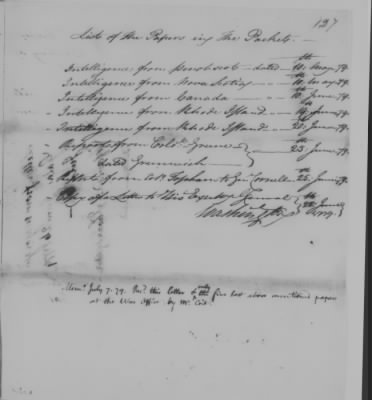 127
List of the Papers in the Packet.
Intelligence from Penobscot - dated - 10th May 79.
Intelligence from Nova Scotia - 10th May 79.
Intelligence from Canada - 10th June 79.
Intelligence from Rhode Island - 19th June 79.
Intelligence from Rhode Island - 22d June 79.
Reports from Colo. Greene } 23d June 79.
Do. dated Greenwich
from Col. Topham to Genl. Cornell 25th June 79.
Copy of a Letter to His Excelly. General } 28th June
Washington
Memo. July 7. 79. Recd. this letter & only the five last above mentioned papers
at the War Office by Mr.